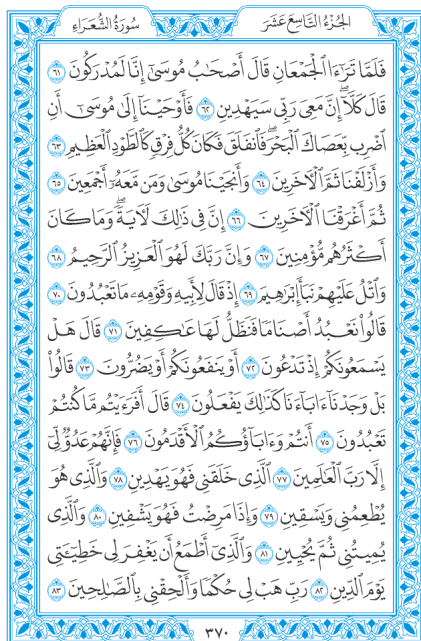 الجزء التاسع عشر
سورة الشعراء
فَلَمَّا تَرَٰٓءَا ٱلْجَمْعَانِ قَالَ أَصْحَٰبُ مُوسَىٰٓ إِنَّا لَمُدْرَكُونَ ٦١
قَالَ كَلَّآ إِنَّ مَعِىَ رَبِّى سَيَهْدِينِ ٦٢ فَأَوْحَيْنَآ إِلَىٰ مُوسَىٰٓ أَنِ
ٱضْرِب بِّعَصَاكَ ٱلْبَحْرَ فَٱنفَلَقَ فَكَانَ كُلُّ فِرْقٍ كَٱلطَّوْدِ ٱلْعَظِيمِ ٦٣
وَأَزْلَفْنَا ثَمَّ ٱلْءَاخَرِينَ ٦٤ وَأَنجَيْنَا مُوسَىٰ وَمَن مَّعَهُۥٓ أَجْمَعِينَ ٦٥
ثُمَّ أَغْرَقْنَا ٱلْءَاخَرِينَ ٦٦ إِنَّ فِى ذَٰلِكَ لَءَايَةً ۖ وَمَا كَانَ
أَكْثَرُهُم مُّؤْمِنِينَ ٦٧ وَإِنَّ رَبَّكَ لَهُوَ ٱلْعَزِيزُ ٱلرَّحِيمُ ٦٨
وَٱتْلُ عَلَيْهِمْ نَبَأَ إِبْرَٰهِيمَ ٦٩ إِذْ قَالَ لِأَبِيهِ وَقَوْمِهِۦ مَا تَعْبُدُونَ ٧٠
قَالُوا۟ نَعْبُدُ أَصْنَامًا فَنَظَلُّ لَهَا عَٰكِفِينَ ٧١ قَالَ هَلْ
يَسْمَعُونَكُمْ إِذْ تَدْعُونَ ٧٢ أَوْ يَنفَعُونَكُمْ أَوْ يَضُرُّونَ ٧٣ قَالُوا۟
بَلْ وَجَدْنَآ ءَابَآءَنَا كَذَٰلِكَ يَفْعَلُونَ ٧٤ قَالَ أَفَرَءَيْتُم مَّا كُنتُمْ
تَعْبُدُونَ ٧٥ أَنتُمْ وَءَابَآؤُكُمُ ٱلْأَقْدَمُونَ ٧٦ فَإِنَّهُمْ عَدُوٌّ لِّىٓ
إِلَّا رَبَّ ٱلْعَٰلَمِينَ ٧٧ ٱلَّذِى خَلَقَنِى فَهُوَ يَهْدِينِ ٧٨ وَٱلَّذِى هُوَ
يُطْعِمُنِى وَيَسْقِينِ ٧٩ وَإِذَا مَرِضْتُ فَهُوَ يَشْفِينِ ٨٠ وَٱلَّذِى
يُمِيتُنِى ثُمَّ يُحْيِينِ ٨١ وَٱلَّذِىٓ أَطْمَعُ أَن يَغْفِرَ لِى خَطِيٓـَٔتِى
يَوْمَ ٱلدِّينِ ٨٢ رَبِّ هَبْ لِى حُكْمًا وَأَلْحِقْنِى بِٱلصَّٰلِحِينَ ٨٣
٣٧٠